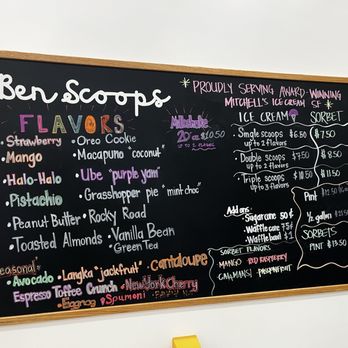 Ben Scoops
FLAVORS
Strawberry
Oreo Cookie
Mango
Macapuno "coconut"
Halo-Halo
Ube "purple yam"
Pistachio
Grasshopper pie "mint choc"
Peanut Butter
Rocky Road
Toasted Almonds
Vanilla Bean
Green Tea
Seasonal
Avocado
Langka "jackfruit"
Cantaloupe
Espresso Toffee Crunch
New York Cherry
Eggnog
Spumoni
Milkshake
20oz $10.50
up to 2 flavors
PROUDLY SERVING AWARD-WINNING
MITCHELL'S ICE CREAM SF
ICE CREAM
SORBET
Single scoops $6.50
$7.50
up to 2 flavors
Double scoops $7.50
$8.50
up to 2 flavors
Triple scoops $10.50
$11.50
up to 3 flavors
Add ons:
Sugar cone 50¢
Waffle cone 75¢
Waffle bowl $1
Pint
½ gallon
SORBETS
PINT $13.50
SORBET FLAVORS
MANGO
RED RASPBERRY
CALAMANSI